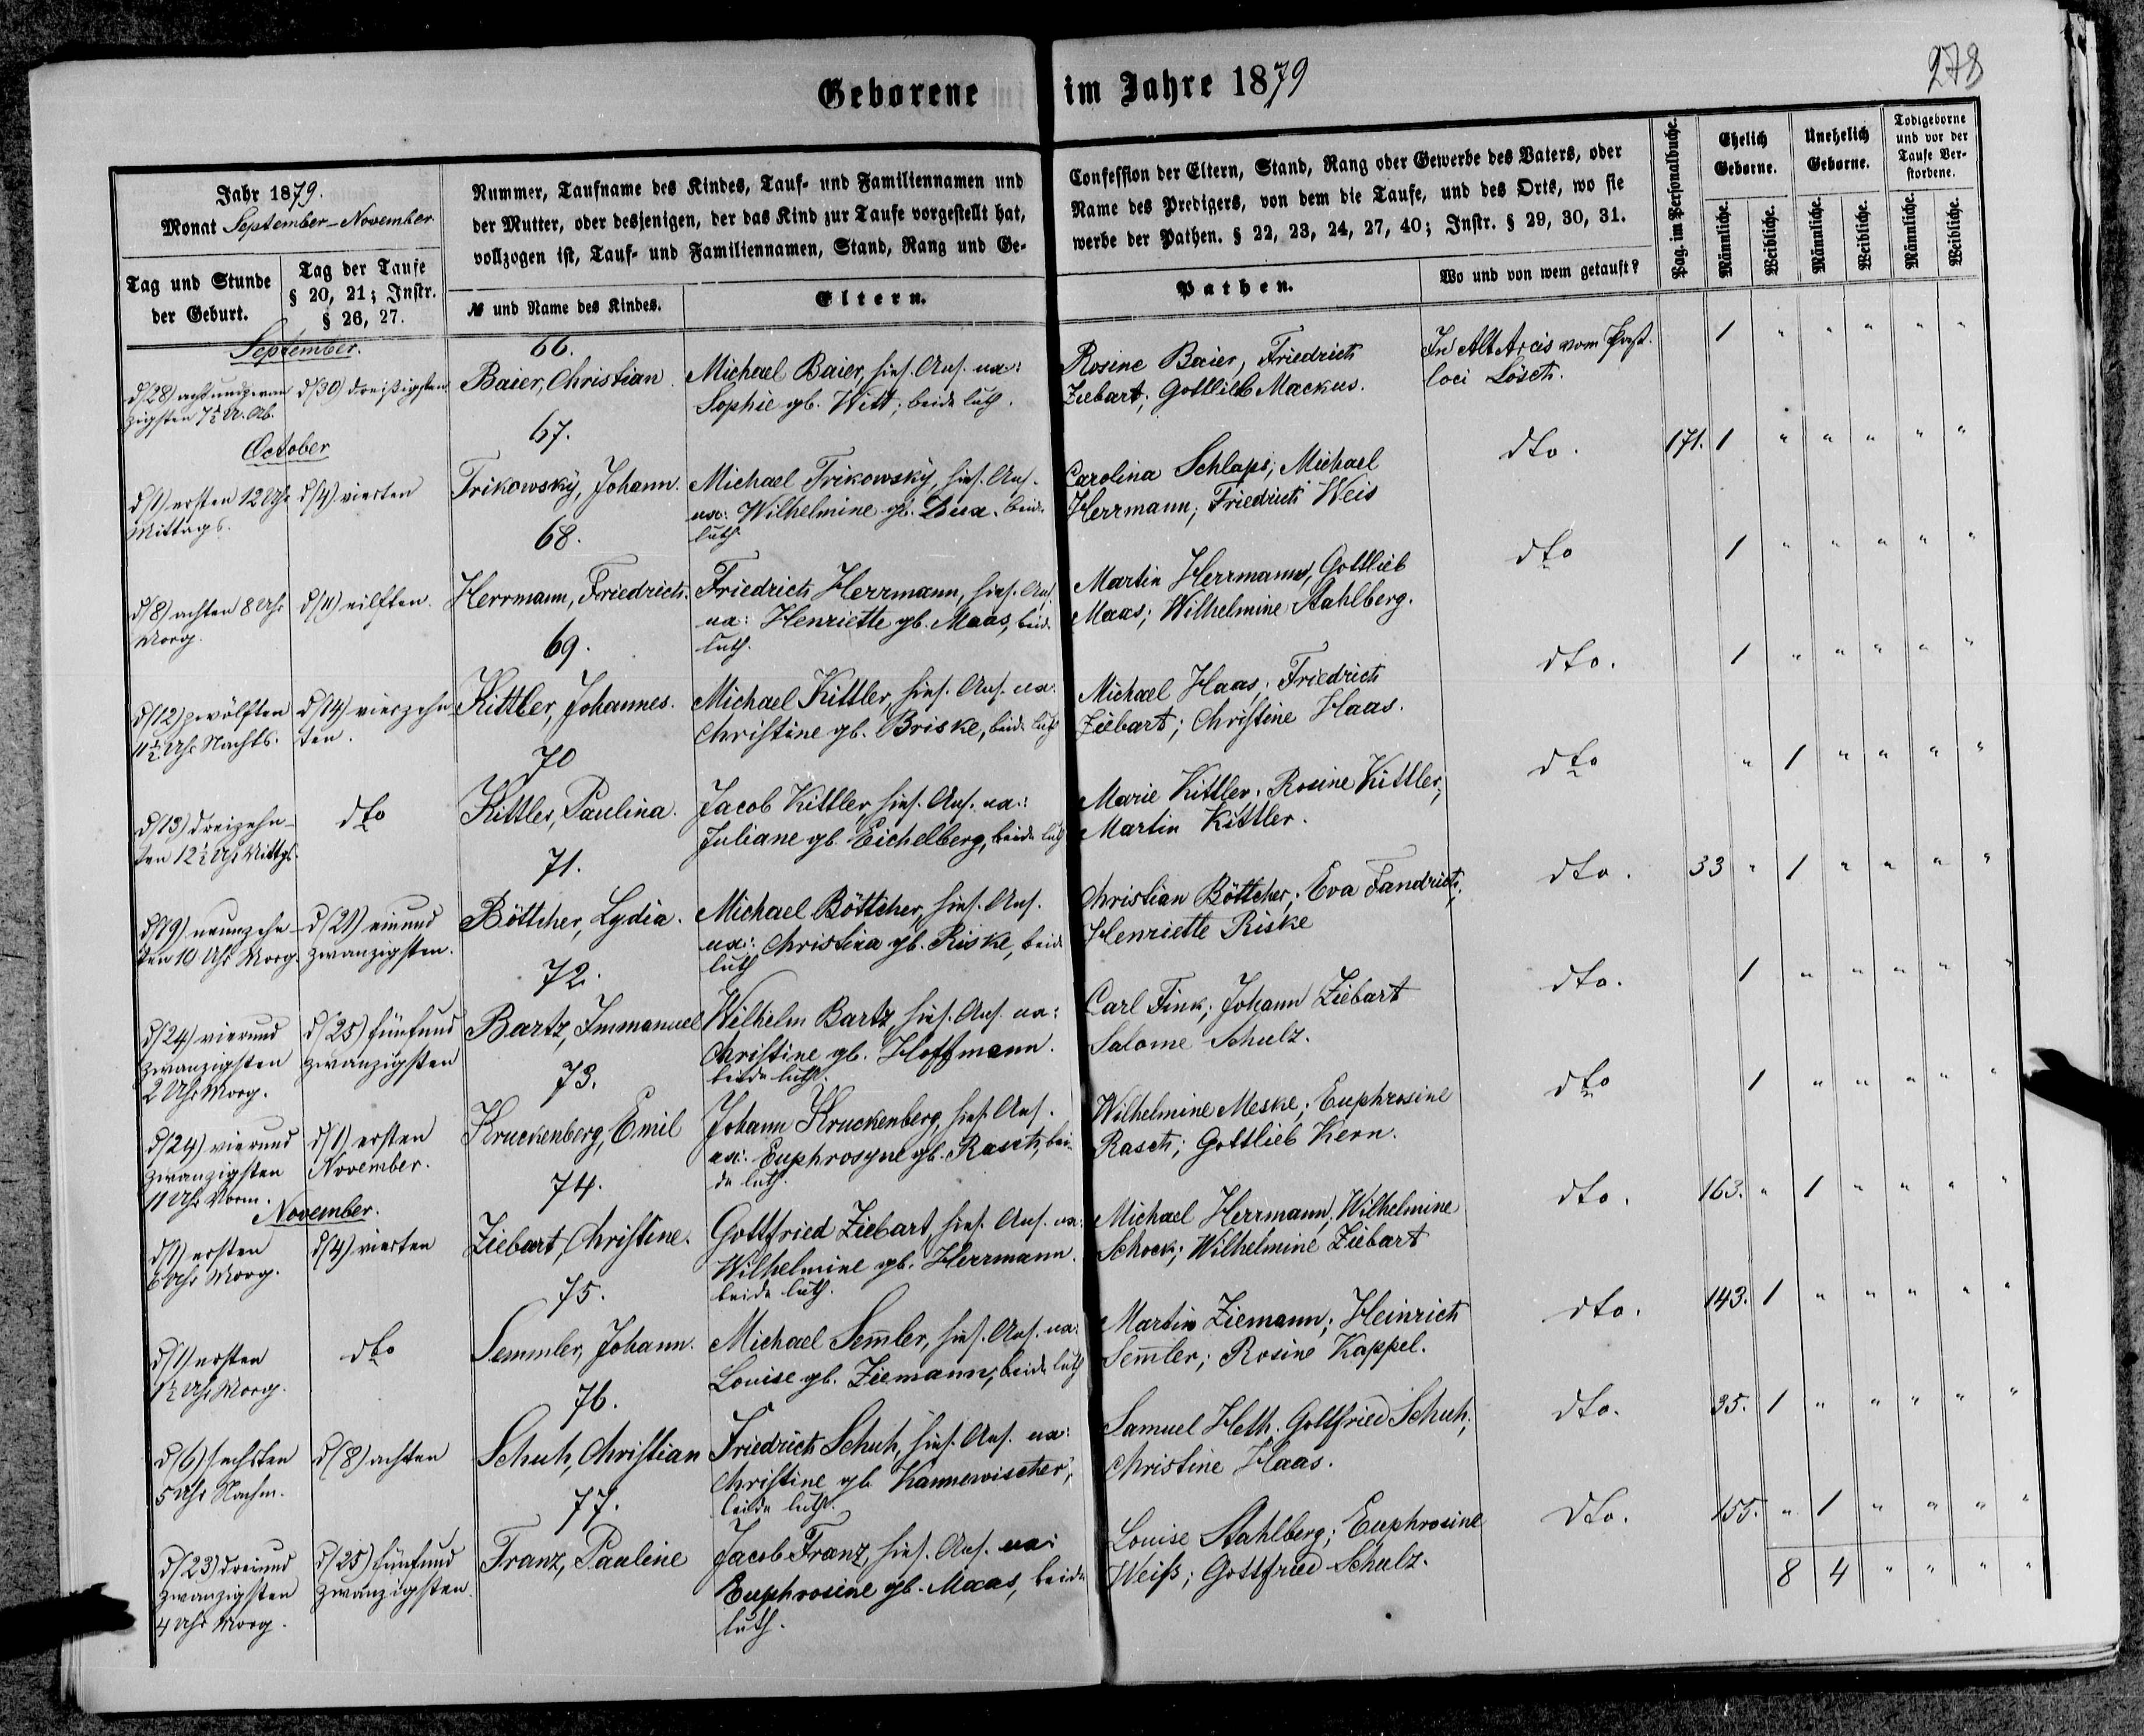 Geborene im Jahre 1879
278
Jahr 1879.
Monat September-November
Tag und Stunde
der Geburt.
Tag der Taufe
§ 20, 21; Instr.
§ 26, 27.
Nummer, Taufname des Kindes, Tauf- und Familiennamen und
der Mutter, oder desjenigen, der das Kind zur Taufe vorgestellt hat,
vollzogen ist, Tauf- und Familiennamen, Stand, Rang und Ge-
№ und Name des Kindes.
Eltern.
Confession der Eltern, Stand, Rang oder Gewerbe des Vaters, oder
Name des Predigers, von dem die Taufe, und des Orts, wo sie
werbe der Pathen. § 22, 23, 24, 27, 40; Instr. § 29, 30, 31.
Pathen.
Wo und von wem getauft?
Pag. im Personalbuche.
Ehelich
Geborne.
Unehelich
Geborne.
Todtgeborne
und vor der
Taufe Ver-
storbene.
Männliche.
Weibliche.
Männliche.
Weibliche.
Männliche.
Weibliche.
September.
d/28) achtundzwan
zigsten 7½ U. Ab.
d/30) dreißigsten.
66.
Baier, Christian.
Michael Baier, hies. Ans. ux:
Sophie gb. Witt; beide luth.
Rosine Baier, Friedrich
Ziebart; Gottlieb Mackus.
In Alt Arcis vom Past.
loci Lösch.
1 " " " " "
October
d/1) ersten 12 Uhr
Mittags.
d/4) vierten
67.
Trikowsky, Johann.
Michael Trikowsky, hies. Ans.
ux: Wilhelmine gb. Dux. beide
luth.
Carolina Schlaps; Michael
Herrmann; Friedrich Weis
dto.
171. 1 " " " " "
d/8) achten 8 Uhr
Morg.
d/11) eilften.
68.
Herrmann, Friedrich.
Friedrich Herrmann, hies. Ans.
ux: Henriette gb. Maas, beide
luth.
Martin Herrmann, Gottlieb
Maas; Wilhelmine Stahlberg.
dto
1 " " " " "
d/12) zwölften
11½ Uhr Nachts.
d/14) vierzehn
ten.
69.
Kittler, Johannes.
Michael Kittler, hies. Ans. ux:
Christine gb. Briske, beide luth
Michael Haas; Friedrich
Ziebart; Christine Haas.
dto.
1 " " " " "
d/13) dreizehn-
ten 12½ Uhr Mittgs.
dto
70
Kittler, Paulina.
Jacob Kittler, hies. Ans. ux:
Juliane gb. Eichelberg, beide luth
Marie Kittler. Rosine Kittler;
Martin Kittler.
dto
" 1 " " " "
d/19) neunzehn-
ten 10 Uhr Morg.
d/21) einund
zwanzigsten.
71.
Böttcher, Lydia.
Michael Böttcher, hies. Ans.
ux: Christina gb. Riske, beide
luth
Christian Böttcher; Eva Fandrich;
Henriette Riske
dto.
33 " 1 " " " "
d/24) vierund
zwanzigsten
2 Uhr Morg.
d/25) fünfund
zwanzigsten
72.
Bartz, Immanuel
Wilhelm Bartz, hies. Ans. ux:
Christine gb. Hoffmann.
beide luth.
Carl Fink; Johann Ziebart
Salome Schulz.
dto.
1 " " " " "
d/24) vierund
zwanzigsten
11 Uhr Vorm.
d/1) ersten
November.
73.
Kruckenberg, Emil
Johann Kruckenberg, hies. Ans.
ux: Euphrosyne gb. Rasch, bei-
de luth.
Wilhelmine Meske; Euphrosine
Rasch; Gottlieb Kern.
dto
1 " " " " "
November.
d/1) ersten
6 Uhr Morg.
d/4) vierten
74.
Ziebart, Christine.
Gottfried Ziebart, hies. Ans. ux:
Wilhelmine gb. Herrmann.
beide luth.
Michael Herrmann; Wilhelmine
Schock; Wilhelmine Ziebart
dto.
163. " 1 " " " "
d/1) ersten
1½ Uhr Morg.
dto
75.
Semmler, Johann.
Michael Sem̄ler, hies. Ans. ux:
Louise gb. Ziemann, beide luth
Martin Ziemann; Heinrich
Sem̄ler; Rosine Kappel.
dto.
143. 1 " " " " "
d/6) sechsten
5 Uhr Nachm.
d/8) achten
76.
Schuh, Christian
Friedrich Schuh, hies. Ans. ux:
Christine gb Kannewischer;
beide luth.
Samuel Heth. Gottfried Schuh;
Christine Haas.
dto.
35. 1 " " " " "
d/23) dreiund
zwanzigsten
4 Uhr Morg.
d/25) fünfund
zwanzigsten
77.
Franz, Pauline
Jacob Franz, hies. Ans. ux:
Euphrosine gb. Maas, beide
luth.
Louise Stahlberg; Euphrosine
Weiß; Gottfried Schulz.
dto.
155. " 1 " " " "
8 4 " " " "